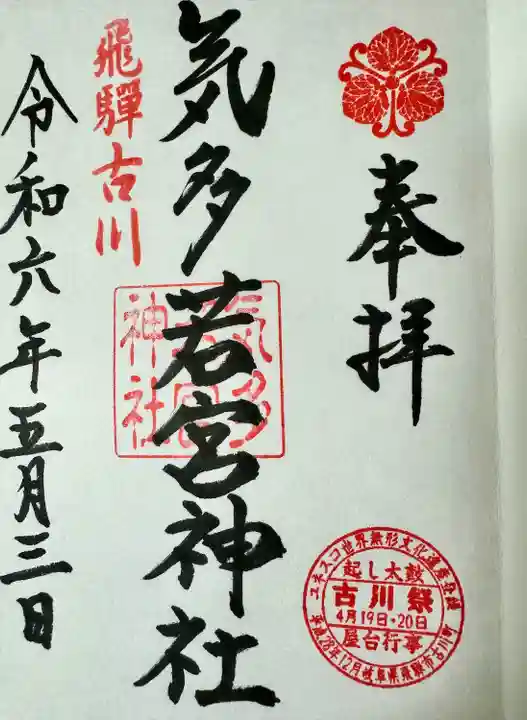 奉拝
ユネスコ世界無形文化遺産登録
起し太鼓
古川祭
4月19日・20日
屋台行事
平成28年12月岐阜県飛騨市古川町
気多若宮神社
気多若宮神社
飛驒古川
令和六年五月三日